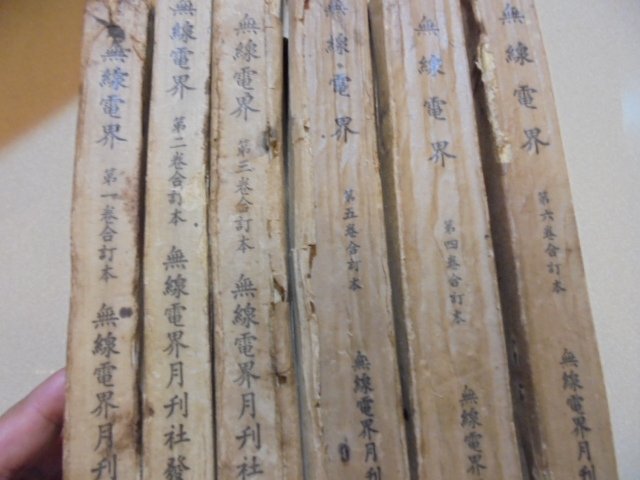 無線電界 第一卷合訂本 無線電界月刊
無線電界 第二卷合訂本 無線電界月刊社發
無線電界 第三卷合訂本 無線電界月刊社
無線電界 第五卷合訂本 無線電界月刊
無線電界 第四卷合訂本 無線電界
無線電界 第六卷合訂本 無線電界月刊